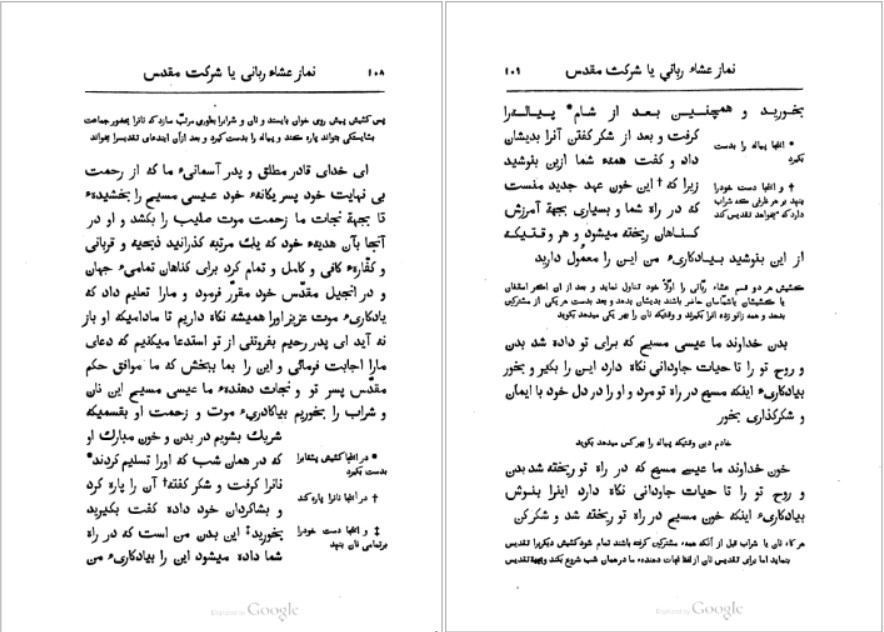 ۱۰۸ نماز عشاء ربانی یا شرکت مقدس
پس کشیش پیش روی خوان بایستد و نان و شرابرا بطوری مرتب سازد که نانرا بحضور جماعت
بشایستگی بتواند پاره کند و پیاله را بدست گیرد و بعد ازآن ایندعای تقدیسرا بخواند
ای خدای قادر مطلق و پدر آسمانیء ما که از رحمت
بی نهایت خود پسر یگانهء خود عیسی مسیح را بخشیدهء
تا بجهة نجات ما زحمت موت صلیب را بکشد و او در
آنجا بآن هدیهء خود که یك مرتبه گذرانید ذبحیه و قربانی
و کفّارهء کافی و کامل و تمام کرد برای گناهان تمامیء جهان
و در انجیل مقدّس خود مقرّر فرمود و مارا تعلیم داد که
یادکاریء موت عزیز اورا همیشه نگاه داریم تا مادامیکه او باز
نه آید ای پدر رحیم بفروتنی از تو استدعا میکنیم که دعای
مارا اجابت فرمائی و این را بما ببخش که ما موافق حکم
مقدّس پسر تو و نجات دهندهء ما عیسی مسیح این نان
و شراب را بخوریم بیاکادریء موت و زحمت او بقسمیکه
شریك بشویم در بدن و خون مبارك او
که در همان شب که اورا تسلیم کردند*
نانرا گرفت و شکر کفته† آن را پاره کرد
و بشاکردان خود داده کفت بکیرید
بخورید‡ این بدن من است که در راه
شما داده میشود این را بیادکاریء من
* در اینجا کشیش بشقابرا
بدست بگیرد
† در اینجا نانرا پاره کند
‡ و اینجا دست خودرا
برتمامی نان بنهد
Digitized by Google
نماز عشاء ربانی یا شرکت مقدس ۱۰۹
بخورید و همچنین بعد از شام* پیالهرا
گرفت و بعد از شکر کفتن آنرا بدیشان
داد و کفت همهء شما ازین بنوشید
زیرا که† این خون عهد جدید منست
که در راه شما و بسیاری بجهة آمرزش
کناهان ریخته میشود و هر وقتیکه
از این بنوشید بیادکاریء من این را معمول دارید
* اینجا پیاله را بدست
بگیرد
† و اینجا دست خودرا
بنهد بر هر ظرفی که شراب
دارد که میخواهد تقدیس کند
کشیش هر دو قسم عشاء ربّانی را اوّلاً خود تناول نماید و بعد از ان اکر اسقفان
یا کشیشان یاشمّاسان حاضر باشند بدیشان بدهد و بعد بدست هر یکی از مشترکین
بدهد و همه زانو زده انرا بگیرند و وقتیکه نان را بهر یکی میدهد بکوید
بدن خداوند ما عیسی مسیح که برای تو داده شد بدن
و روح تو را تا حیات جاودانی نکاه دارد این را بکیر و بخور
بیادکاریء اینکه مسیح در راه تو مرد و او را در دل خود با ایمان
و شکرکذاری بخور
خادم دین وقتیکه پیاله را بهرکس میدهد بکوید
خون خداوند ما عیسی مسیح که در راه تو ریخته شد بدن
و روح تو را تا حیات جاودانی نکاه دارد اینرا بنوش
بیادکاریء اینکه خون مسیح در راه تو ریخته شد و شکر کن
هرکاه نان یا شراب قبل از آنکه همهء مشترکین کرفته باشند تمام شود کشیش دیکریرا تقدیس
بنماید اما برای تقدیس نان از لفظ نجات دهندهء ما در همان شب شروع بکند و بجهة تقدیس
Digitized by Google